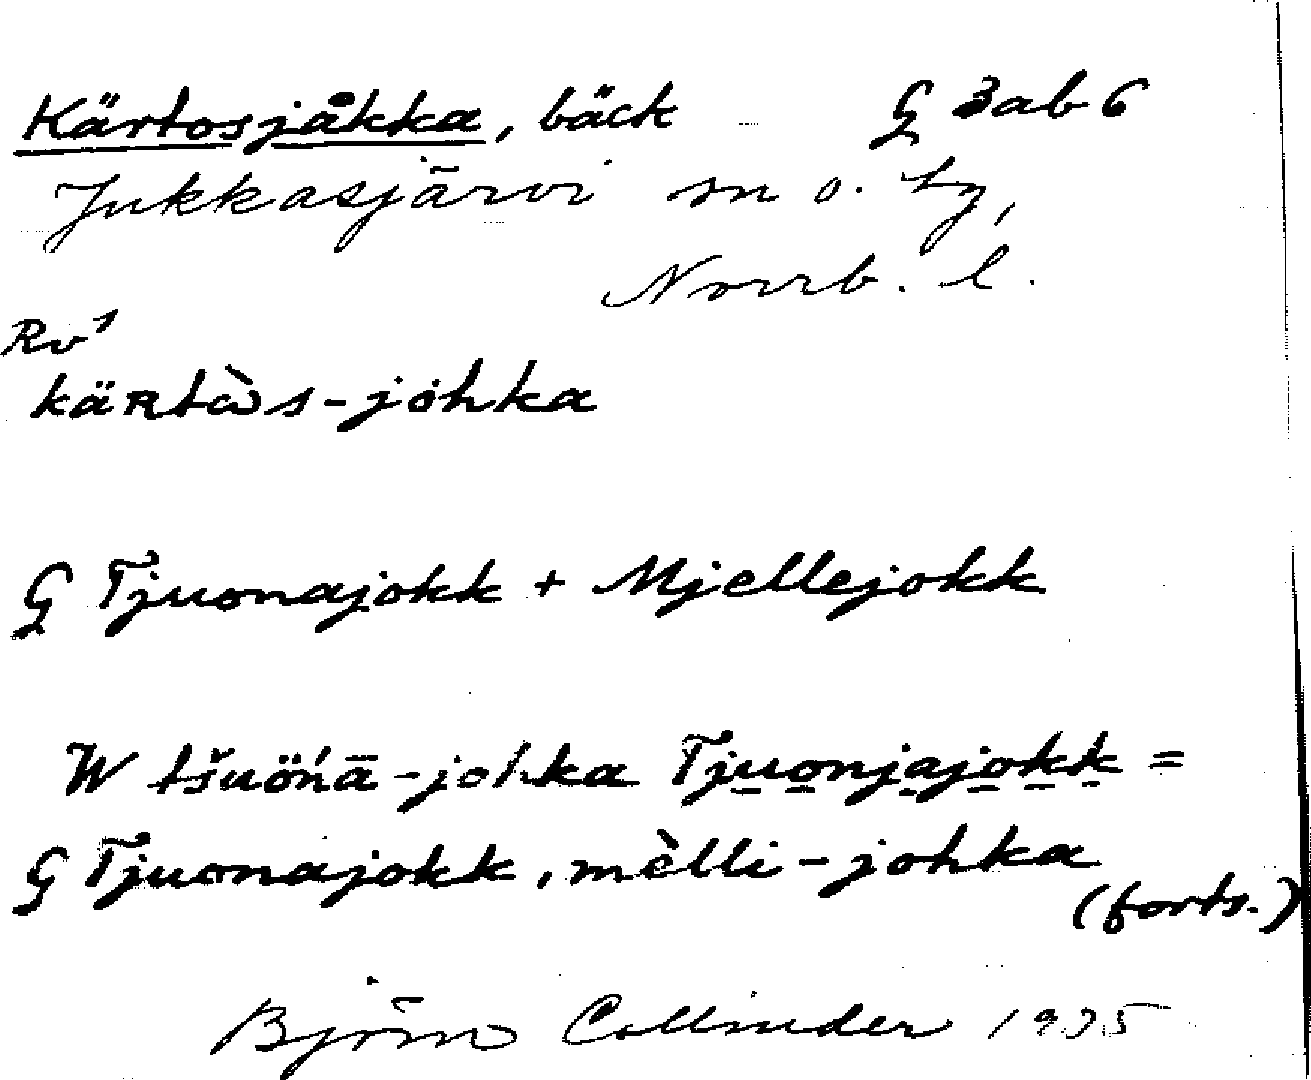 Kärtosjåkka, bäck G 3ab6
Jukkasjärvi sn o. tg,
Norrb. l.
Rv¹
käʀtὰs-johka
G Tjuonajokk + Mjellejokk
W tšuöńā-johka Tjuonjajokk =
G Tjuonajokk, mὲlli-johka
(forts.)
Björn Collinder 1935